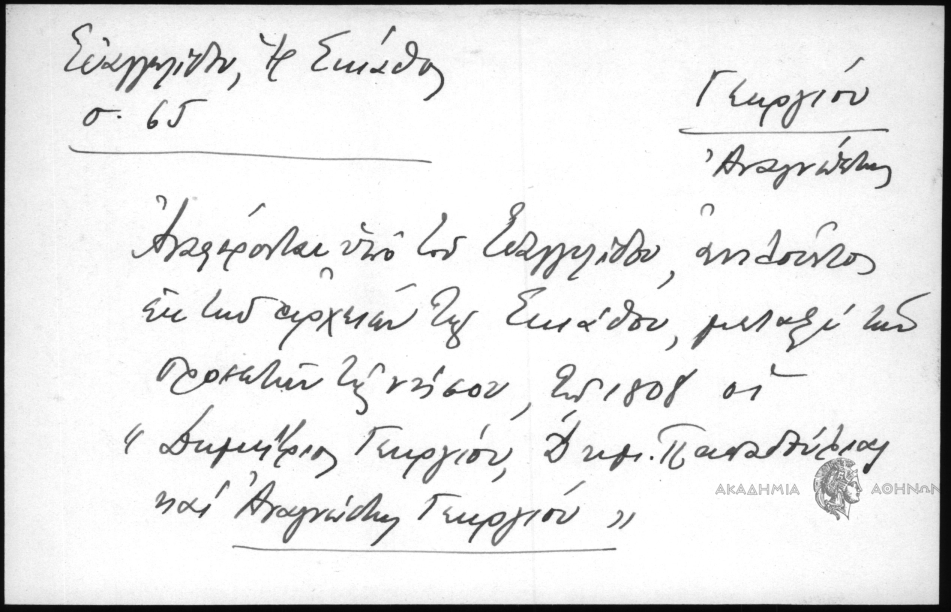 Εὐαγγελίδου, Ἡ Σκιάθος
σ. 65
Γεωργίου
Ἀναγνώστης
Ἀναφέρονται ὑπό τοῦ Εὐαγγελίδου, ἀντλοῦντος
ἐκ τῶν ἀρχείων τῆς Σκιάθου, μεταξύ τῶν
προκρίτων τῆς νήσου, τῷ 1808 οἱ
"Δημήτριος Γεωργίου, Δημ. Παπαθύμιας
καί Ἀναγνώστης Γεωργίου"
ΑΚΑΔΗΜΙΑ ΑΘΗΝΩΝ